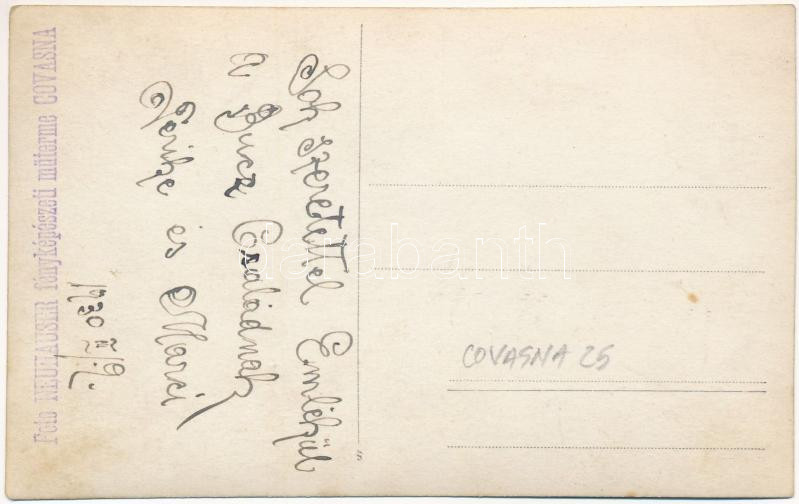 Foto NEUHAUSER fényképészeti műterme COVASNA
Sok szeretettel Emlékül
a Bucz Családnak
Verike és Marci
1930
COVASNA 25
darabanth